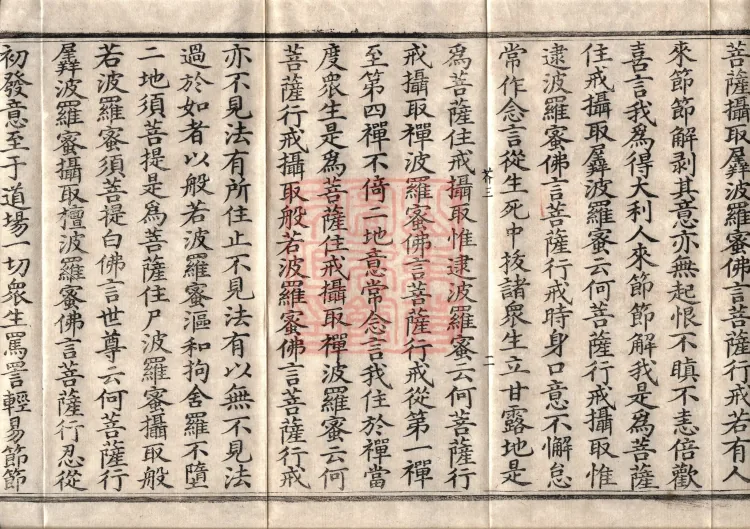 菩薩攝取羼波羅蜜佛言菩薩行戒若有人
來節節解剥其意亦無起恨不瞋不恚倍歡
喜言我爲得大利人來節節解我是爲菩薩
住戒攝取羼波羅蜜云何菩薩行戒攝取惟
逮波羅蜜佛言菩薩行戒時身口意不懈怠
常作念言從生死中拔諸衆生立甘露地是
爲菩薩住戒攝取惟逮波羅蜜云何菩薩行
戒攝取禪波羅蜜佛言菩薩行戒從第一禪
至第四禪不倚二地意常念言我住於禪當
度衆生是爲菩薩住戒攝取禪波羅蜜云何
菩薩行戒攝取般若波羅蜜佛言菩薩行戒
亦不見法有所住止不見法有以無不見法
過於如者以般若波羅蜜漚和拘舍羅不墮
二地須菩提是爲菩薩住尸波羅蜜攝取般
若波羅蜜須菩提白佛言世尊云何菩薩行
羼波羅蜜攝取檀波羅蜜佛言菩薩行忍從
初發意至于道場一切衆生罵詈輕易節節